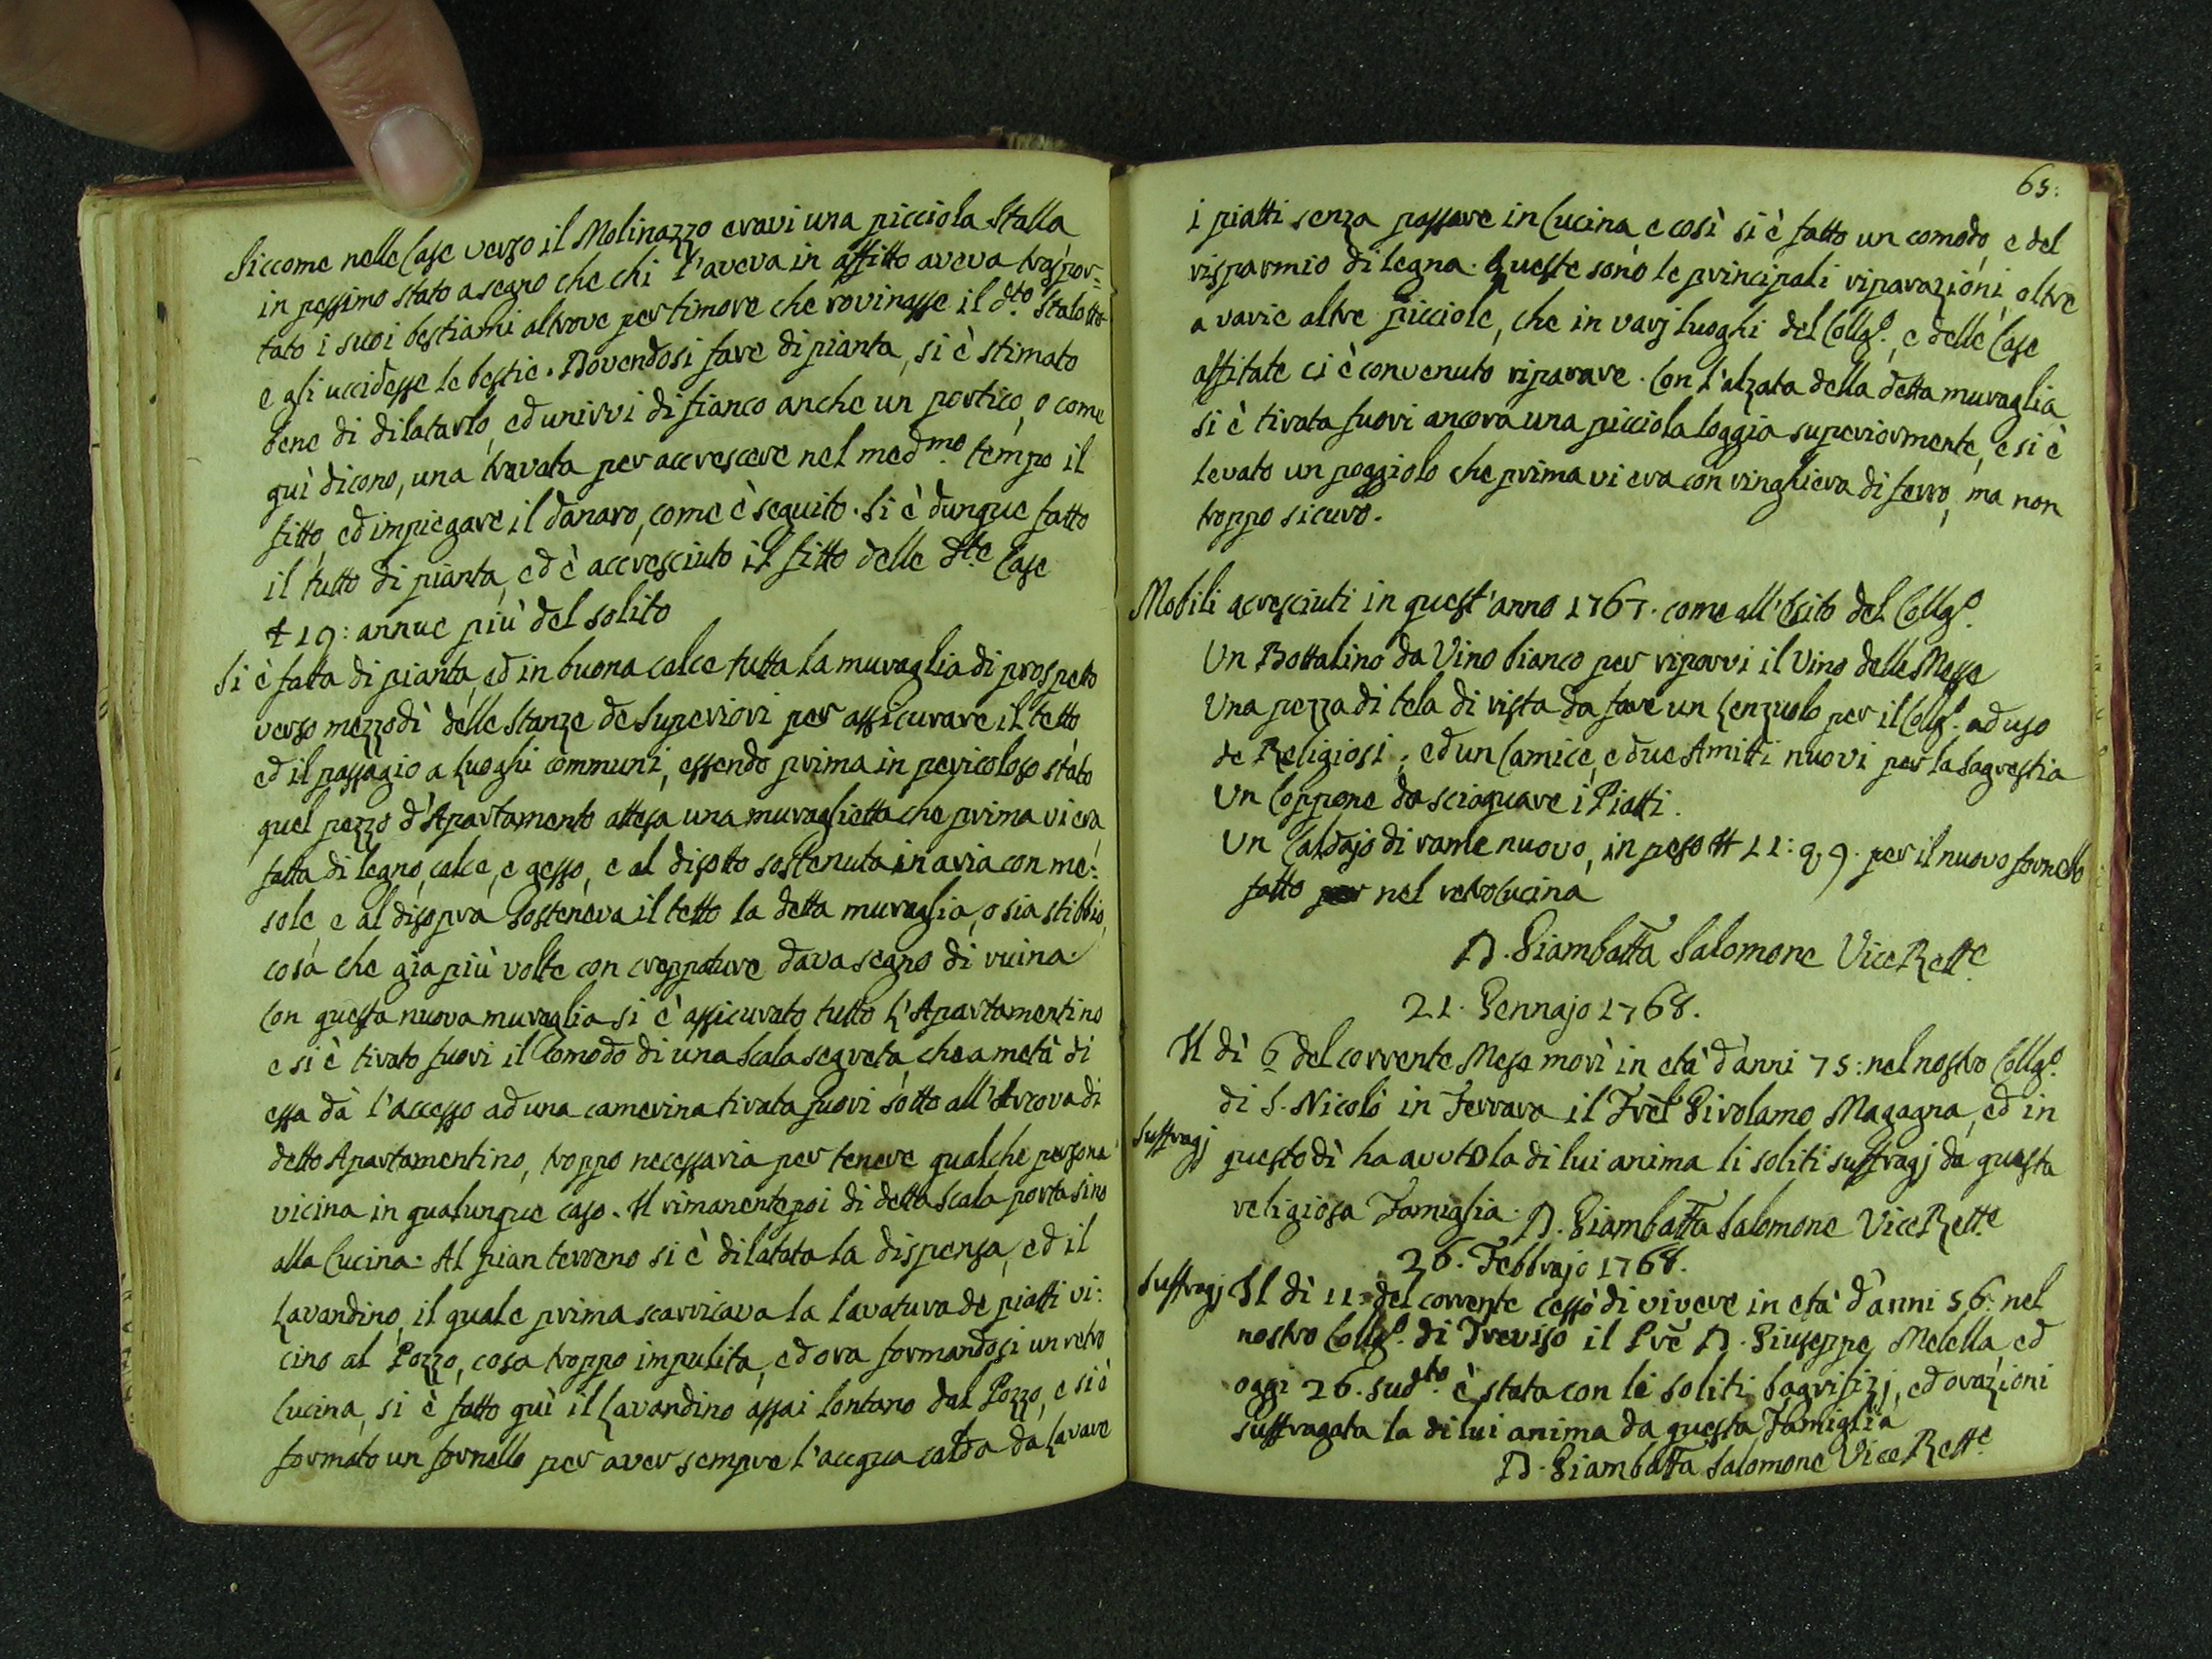 Siccome nelle Case verso il Molinazzo eravi una picciola Stalla
in pessimo stato a segno che chi l'aveva in affitto aveva traspor=
tato i suoi bestiami altrove per timore che rovinasse il d.to Stalotto
e gli uccidesse le bestie. Dovendosi fare di pianta, si è stimato
bene di dilatarlo, ed unirvi di fianco anche un portico, o come
quì dicono, una travata per accrescere nel med.mo tempo il
fitto, ed impiegare il danaro, come è seguito. Si è dunque fatto
il tutto di pianta, ed è accresciuto il fitto delle d.te Case
19: annue più del solito
Si è fatta di pianta, ed in buona calce tutta la muraglia di prospetto
verso mezzodì delle Stanze de Superiori per assicurare il tetto
ed il passagio a Luoghi communi, essendo prima in pericoloso stato
quel pezzo d'Apartamento attesa una muraglietta che prima vi era
fatta di legno, calce, e gesso, e al disotto sostenuta in aria con me:
sole, e al disopra sosteneva il tetto la detta muraglia, o sia stibbio,
cosa che gia più volte con creppature dava segno di ruina.
Con questa nuova muraglia si è assicurato tutto l'Apartamentino
e si è tirato fuori il Comodo di una Scala segreta, che a metà di
essa dà l'accesso ad una camerina tirata fuori sotto all'Arcova di
detto Apartamentino, troppo necessaria per tenere qualche persona
vicina in qualunque caso. Il rimanente poi di detta Scala porta sino
alla Cucina. Al pian terreno si è dilatata la dispensa, ed il
Lavandino, il quale prima scarricava la lavatura de piatti vi:
cino al Pozzo, cosa troppo impulita, ed ora formandosi un retro
Cucina, si è fatto quì il Lavandino assai lontano dal Pozzo, e si è
formato un fornello per aver sempre l'accqua calda da Lavare
65:
i piatti senza passare in Cucina, e così si è fatto un comodo, e del
risparmio di legna. Queste sono le principali riparazioni, oltre
a varie altre picciole, che in varj luoghi del Collg.o, e delle Case
affitate ci è convenuto riparare. Con l'alzata della detta muraglia
si è tirata fuori ancora una picciola loggia superiormente, e si è
levato un poggiolo che prima vi era con ringhiera di ferro, ma non
troppo sicuro.
Mobili acresciuti in quest'anno 1767. come all'Esito del Collg.o
Un Bottalino da Vino bianco per riporvi il Vino delle Messe
Una pezza di tela di rista da fare un Lenzuolo per il Collg.o ad uso
de Religiosi; ed un Camice, e due Amitti nuovi per la Sagrestia
Un Coppone da sciaquare i Piatti.
Un Caldajo di rame nuovo, in peso 11: 9,9. per il nuovo fornello
fatto nel retrocucina
D. Giambatta Salomone Vice Rett.e
21. Gennajo 1768.
Il dì 6 del corrente Mese morì in età d'anni 75: nel nostro Collg.o
di S. Nicolò in Ferrara il Frèl Girolamo Magagna, ed in
Suffragj
questo dì ha avuto la di lui anima li soliti suffragj da questa
religiosa Famiglia. D. Giambatta Salomone Vice Rett.e
26. Febbrajo 1768.
Suffragj Il dì 11. del corrente cessò di vivere in età d'anni 56: nel
nostro Collg.o di Treviso il Prè D. Giuseppe Melella, ed
oggi 26. sud.to è stata con li soliti Sagrifizj, ed orazioni
suffragata la di lui anima da questa Famiglia
D. Giambatta Salomone Vice Rett.e